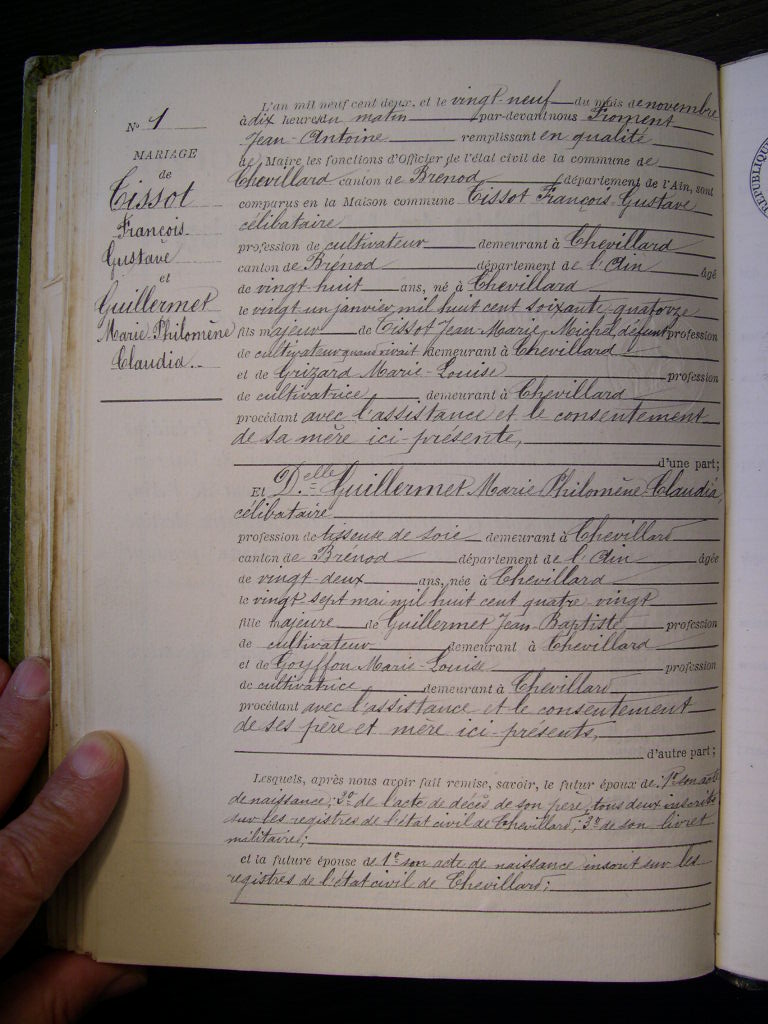 N° 1
MARIAGE
de
Tissot
François
Gustave
et
Guillermet
Marie-Philomène
Claudia..
L'an mil neuf cent deux, et le vingt-neuf du mois de novembre
à dix heures du matin par-devant nous Froment
Jean-Antoine remplissant en qualité
de Maire les fonctions d'Officier de l'état civil de la commune de
Chevillard canton de Brénod département de l'Ain, sont
comparus en la Maison commune Tissot François-Gustave
célibataire
profession de cultivateur demeurant à Chevillard
canton de Brénod département de l'Ain âgé
de vingt-huit ans, né à Chevillard
le vingt un janvier mil huit cent soixante-quatorze
fils majeur de Tissot Jean-Marie-Michel, défunt profession
de cultivateur quand vivait demeurant à Chevillard
et de Grizard Marie-Louise profession
de cultivatrice demeurant à Chevillard
procédant avec l'assistance et le consentement
de sa mère ici-présente,
d'une part;
Et D.elle Guillermet Marie Philomène-Claudia,
célibataire
profession de tisseuse de soie demeurant à Chevillard
canton de Brénod département de l'Ain âgée
de vingt-deux ans, née à Chevillard
le vingt-sept mai mil huit cent quatre-vingt
fille majeure de Guillermet Jean-Baptiste profession
de cultivateur demeurant à Chevillard
et de Goyffon Marie-Louise profession
de cultivatrice demeurant à Chevillard
procédant avec l'assistance et le consentement
de ses père et mère ici-présents,
d'autre part;
Lesquels, après nous avoir fait remise, savoir, le futur époux de 1° son acte
de naissance; 2° de l'acte de décès de son père, tous deux inscrits
sur les registres de l'état civil de Chevillard; 3° de son livret
militaire;
et la future épouse de 1° son acte de naissance inscrit sur les
registres de l'état civil de Chevillard;